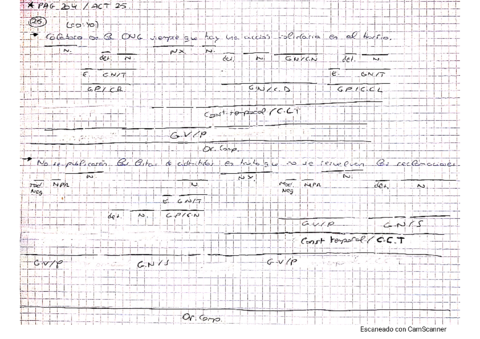 * PAG. 204 / ACT 25.
(25) (20:40)
→ Colabora en la ONG siempre que hay una acción solidaria en el barrio.
N. det. N. NX N. det. N. GN/CN det. N.
E GN/T E GN/T
GP/CR GN/C.D GP/C.CL
Const. temporal / C.C.T
G.V/P
Or. Comp.
→ No se publicarán las listas de admitidos en tanto que no se resuelvan las reclamaciones
Mod. Neg NPR. N N NX. Mod. Neg NPR. N. det. N.
E GN/T
det. N. GP/CN
G.V/P G.N/S
Const temporal / C.C.T
G.V/P G.N/S G.V/P
Or. Comp.
Escaneado con CamScanner